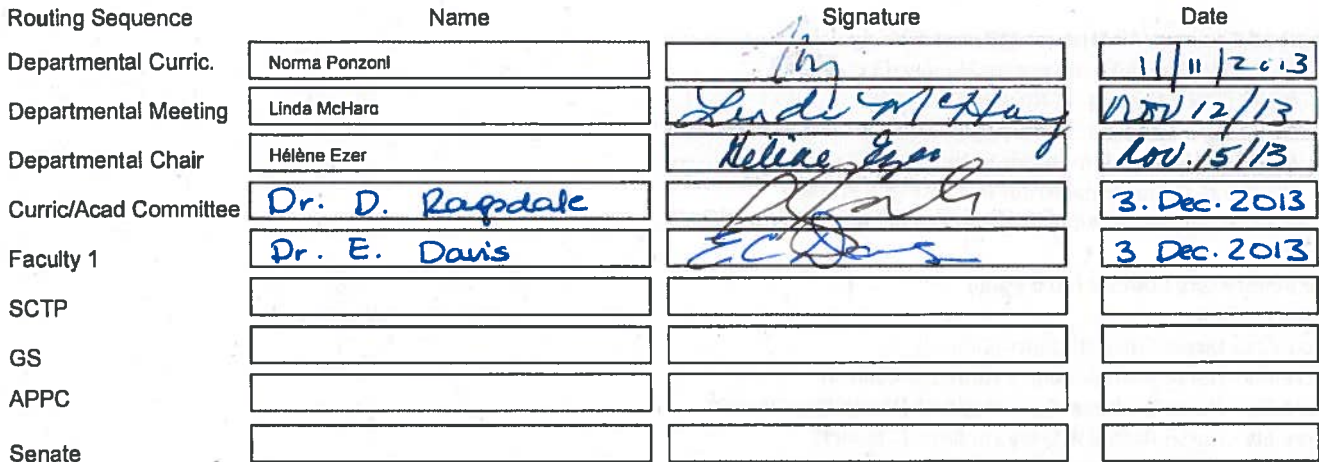 Routing Sequence Name Signature Date
Departmental Curric. Norma Ponzoni 11/11/2013
Departmental Meeting Linda McHarg Linda McHarg Nov 12/13
Departmental Chair Hélène Ezer Hélène Ezer Nov. 15/13
Curric/Acad Committee Dr. D. Ragsdale 3. Dec. 2013
Faculty 1 Dr. E. Davis E C Davis 3 Dec. 2013
SCTP
GS
APPC
Senate